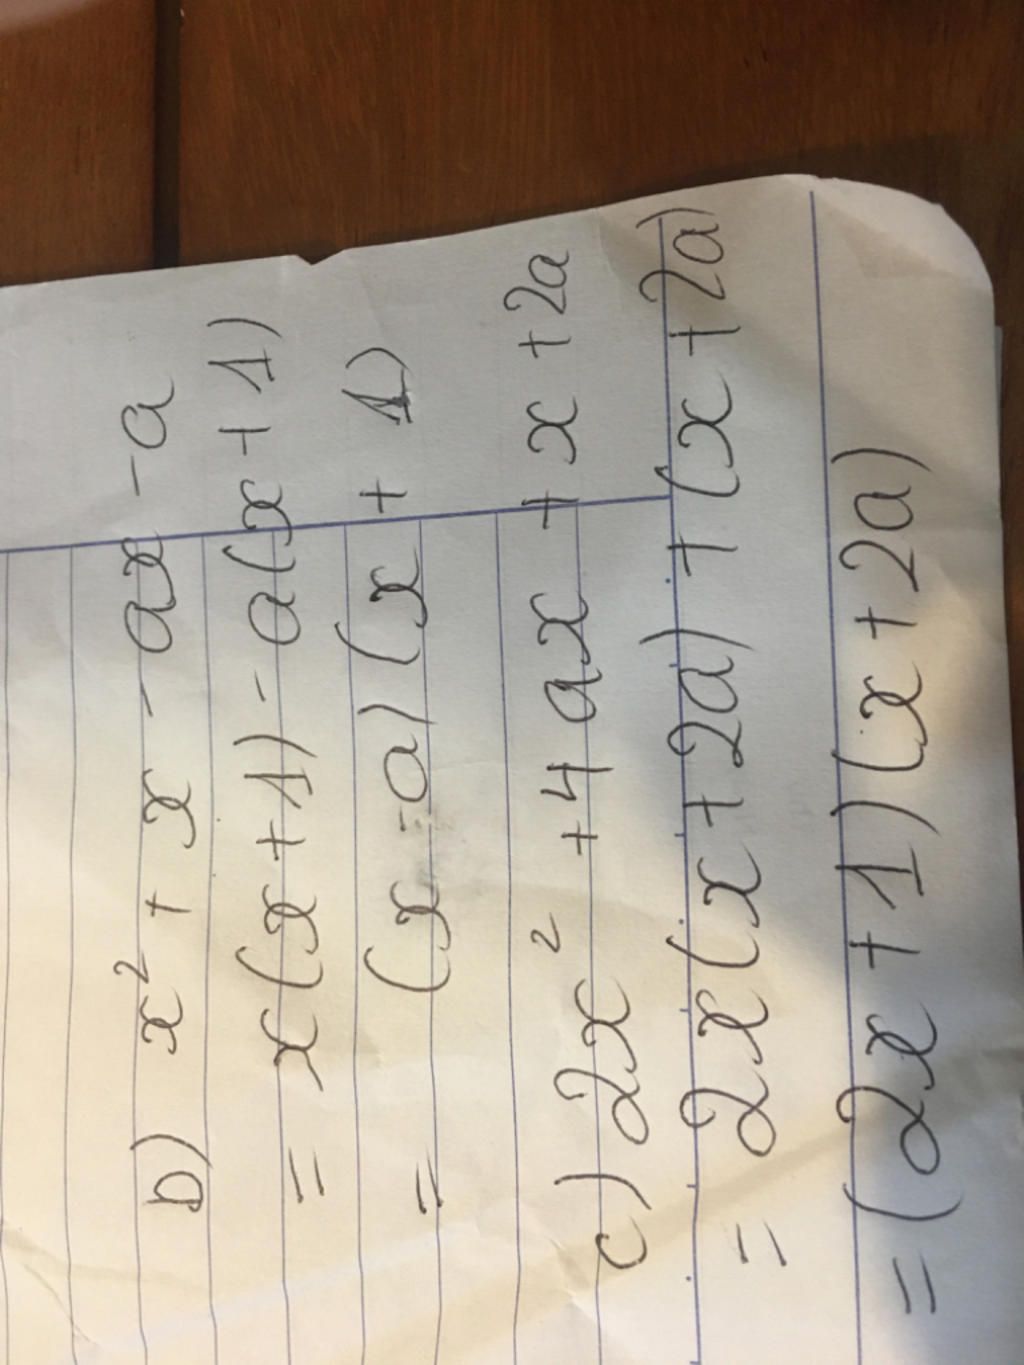 b) x² + x - ax - a
= x(x+1) - a(x+1)
= (x-a)(x + 1)
c) 2x² + 4ax + x + 2a
= 2x(x+2a) + (x+2a)
= (2x+1)(x+2a)